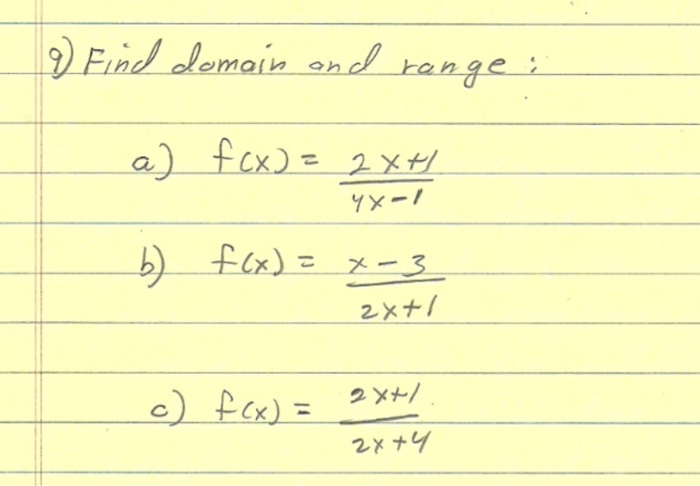 9) Find domain and range :
a) f(x) = 2x+1
4x-1
b) f(x) = x-3
2x+1
c) f(x) = 2x+1
2x+4